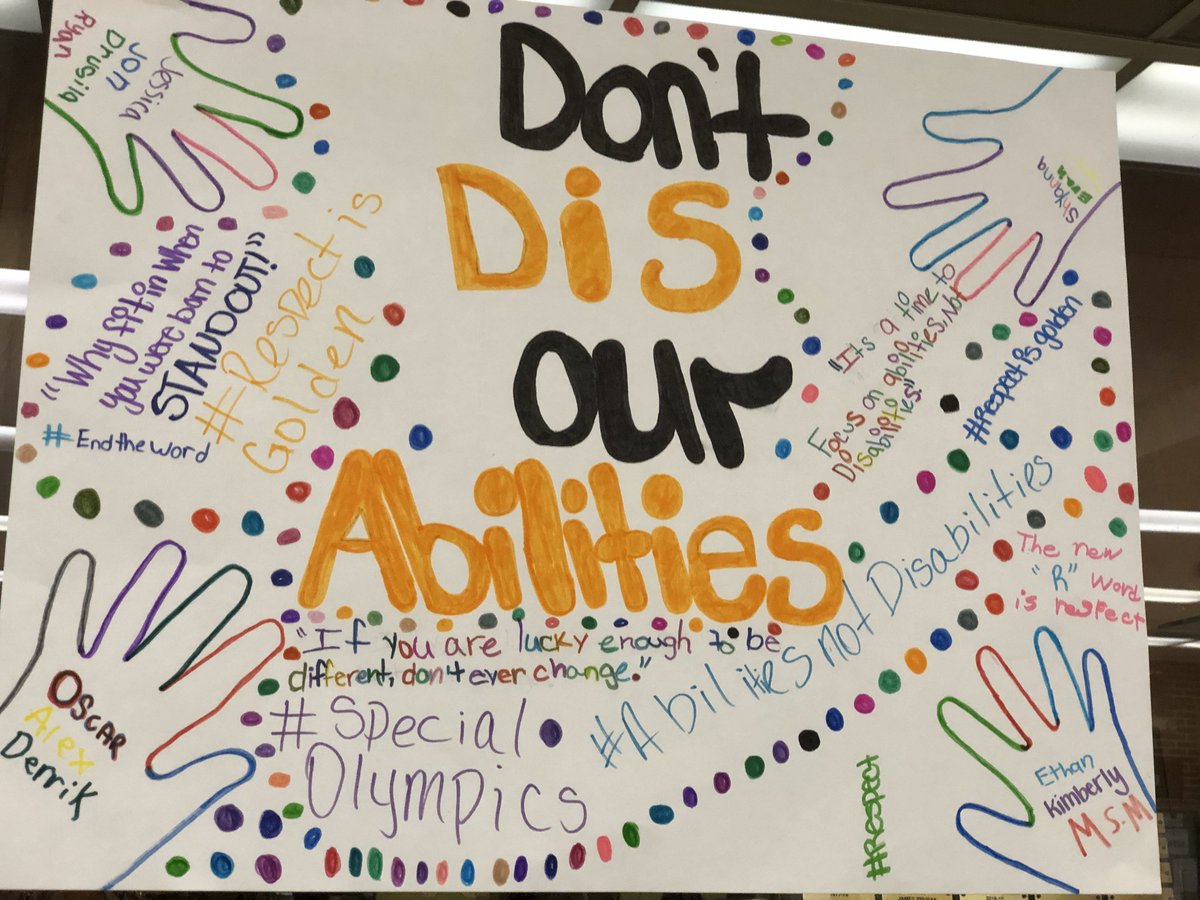 Don't
Dis
our
Abilities
Ryan
Drusila
Jon
Jessica
"Why fit in when
you were born to
STANDOUT!"
#EndtheWord
#Respect is
Golden
Shyanna
Evan
"Its a to time to
Focus on abilities, Not
Disabilities"
#Respect is golden
#Abilities not Disabilities
The new
"R" word
is respect
"If you are lucky enough to be
different, don't ever change."
#Special
Olympics
Oscar
Alex
Derrik
#Respect
Ethan
Kimberly
MS.M